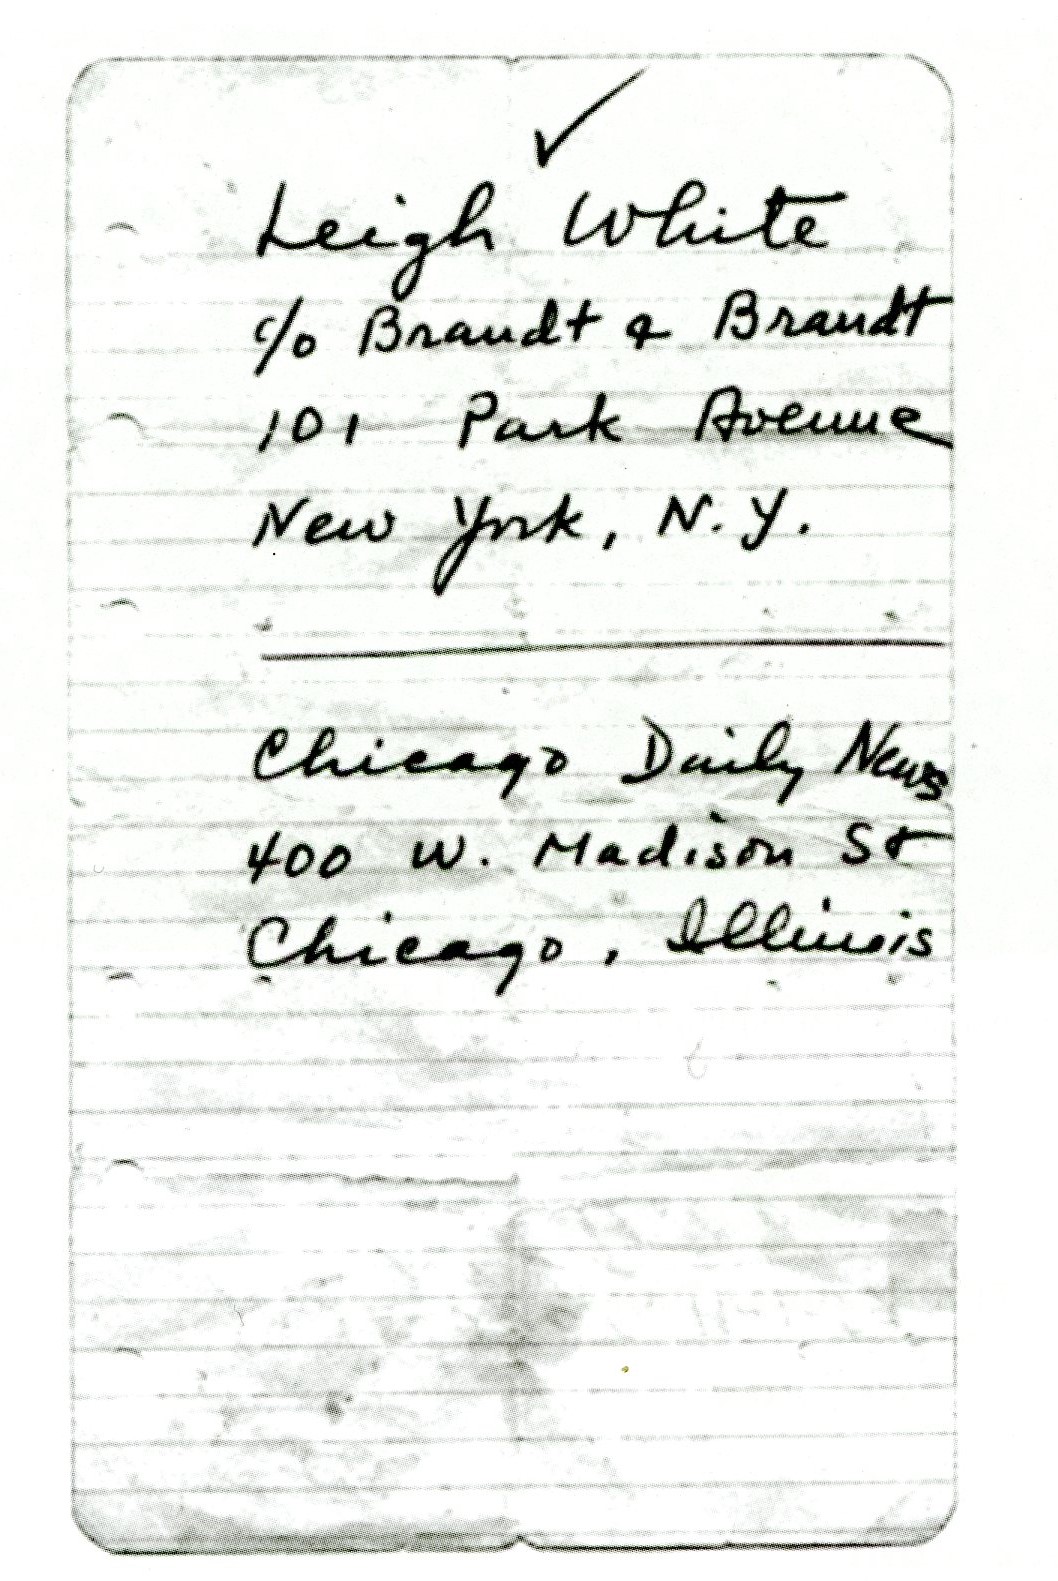 ✓
Leigh White
c/o Brandt & Brandt
101 Park Avenue
New York, N.Y.
Chicago Daily News
400 W. Madison St
Chicago, Illinois